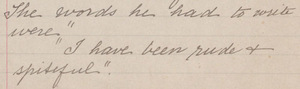 The words he had to write
were "
"I have been rude &
spiteful".